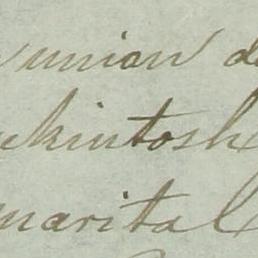 union d
ckintosh
marital